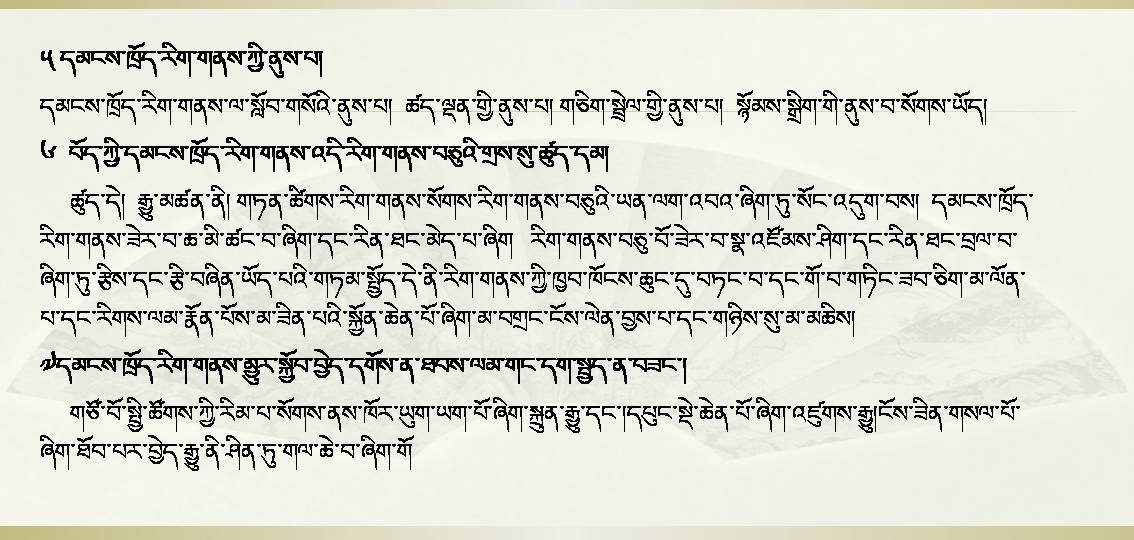 ༥ དམངས་ཁྲོད་རིག་གནས་ཀྱི་ནུས་པ།
དམངས་ཁྲོད་རིག་གནས་ལ་སློབ་གསོའི་ནུས་པ།  ཚད་ལྡན་གྱི་ནུས་པ། གཅིག་སྦྲེལ་གྱི་ནུས་པ།  སྙོམས་སྒྲིག་གི་ནུས་བ་སོགས་ཡོད།
༦  བོད་ཀྱི་དམངས་ཁྲོད་རིག་གནས་འདི་རིག་གནས་བཅུའི་གྲས་སུ་ཚུད་དམ།
ཚུད་དེ།  རྒྱུ་མཚན་ནི། གཏན་ཚིགས་རིག་གནས་སོགས་རིག་གནས་བཅུའི་ཡན་ལག་འབའ་ཞིག་ཏུ་སོང་འདུག་བས།  དམངས་ཁྲོད་
རིག་གནས་ཟེར་བ་ཆ་མི་ཚང་བ་ཞིག་དང་རིན་ཐང་མེད་པ་ཞིག   རིག་གནས་བཅུ་བོ་ཟེར་བ་སྣ་འཛོམས་ཤིག་དང་རིན་ཐང་བྲལ་བ་
ཞིག་ཏུ་རྩིས་དང་རྩི་བཞིན་ཡོད་པའི་གཏམ་སྤྱོད་དེ་ནི་རིག་གནས་ཀྱི་ཁྱབ་ཁོངས་ཆུང་དུ་བཏང་བ་དང་གོ་བ་གཏིང་ཟབ་ཅིག་མ་ལོན་
པ་དང་རིགས་ལམ་རྣོན་པོས་མ་ཟིན་པའི་སྐྱོན་ཆེན་པོ་ཞིག་མ་བགྲང་ངོས་ལེན་བྱས་པ་དང་གཉིས་སུ་མ་མཆིས།
༧དམངས་ཁྲོད་རིག་གནས་མྱུར་སྐྱོབ་བྱེད་དགོས་ན་ཐབས་ལམ་གང་དག་སྤྱད་ན་བཟང་།
གཙོ་བོ་སྤྱི་ཚོགས་ཀྱི་རིམ་པ་སོགས་ནས་ཁོར་ཡུག་ཡག་པོ་ཞིག་སྐྲུན་རྒྱུ་དང་།དཔུང་སྡེ་ཆེན་པོ་ཞིག་འཛུགས་རྒྱུ།ངོས་ཟིན་གསལ་པོ་
ཞིག་ཐོབ་པར་བྱེད་རྒྱུ་ནི་ཤིན་ཏུ་གལ་ཆེ་བ་ཞིག་གོ